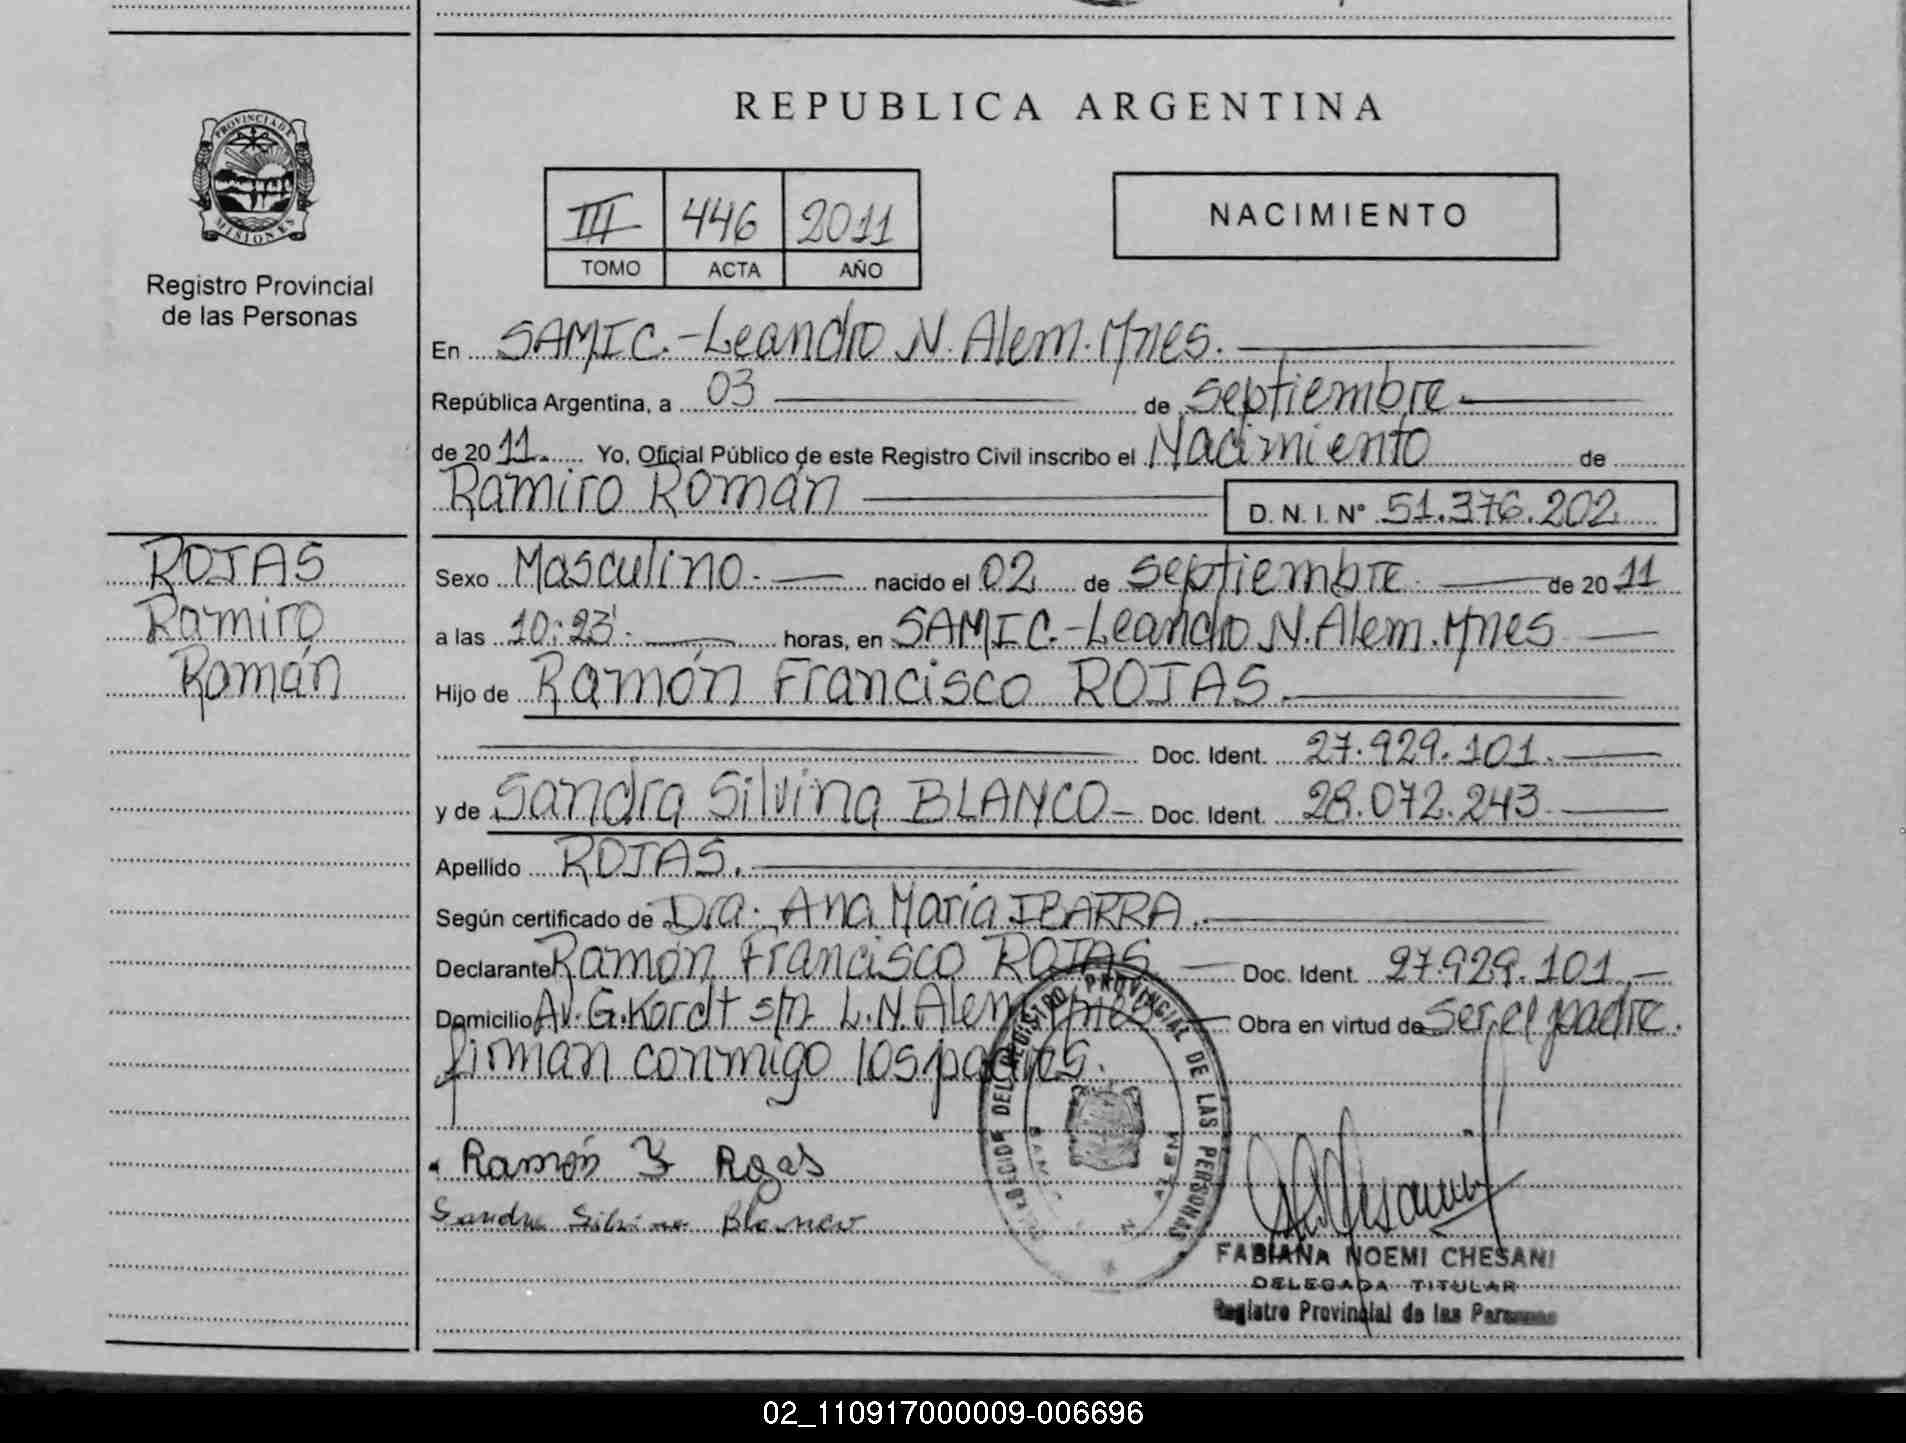 PROVINCIA DE
MISIONES
Registro Provincial
de las Personas
ROJAS
Ramiro
Román
REPUBLICA ARGENTINA
III 446 2011
TOMO ACTA AÑO
NACIMIENTO
En SAMIC.-Leandro N. Alem. Mnes.
República Argentina, a 03 de septiembre
de 2011. Yo, Oficial Público de este Registro Civil inscribo el Nacimiento de
Ramiro Román D. N. I. Nº 51.376.202
Sexo Masculino. nacido el 02 de septiembre. de 2011
a las 10:23'. horas, en SAMIC.-Leandro N. Alem. Mnes
Hijo de Ramón Francisco ROJAS.
Doc. Ident. 27.929.101.
y de Sandra Silvina BLANCO- Doc. Ident. 28.072.243
Apellido ROJAS.
Según certificado de Dra. Ana María IBARRA.
Declarante Ramón Francisco ROJAS Doc. Ident. 27.929.101.-
Domicilio Av. G. Kordt s/n. L.N. Alem Mnes Obra en virtud de ser el padre.
firman conmigo los padres.
DEL REGISTRO PROVINCIAL DE LAS PERSONAS
Ramón F Rojas
Sandra Silvina Blanco
FABIANA NOEMI CHESANI
DELEGADA TITULAR
Registro Provincial de las Personas
02_110917000009-006696